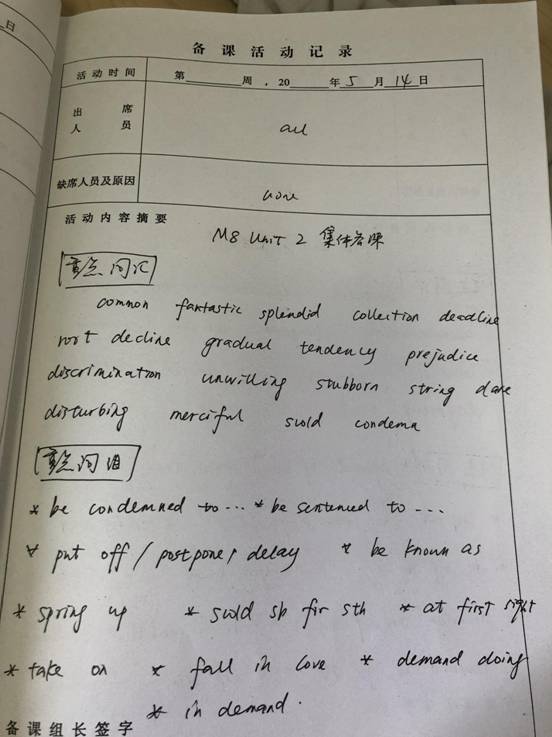 日
备课活动记录
活动时间 第 周，20 年 5 月 14 日
出席人员 all
缺席人员及原因 none
活动内容摘要
M8 Unit 2 集体备课
重点词汇
common fantastic splendid collection deadline
root decline gradual tendency prejudice
discrimination unwilling stubborn string dare
disturbing merciful scold condemn
重点词组
* be condemned to ... * be sentenced to ...
* put off / postpone, delay * be known as
* spring up * scold sb for sth * at first sight
* take on * fall in love * demand doing
* in demand.
备课组长签字